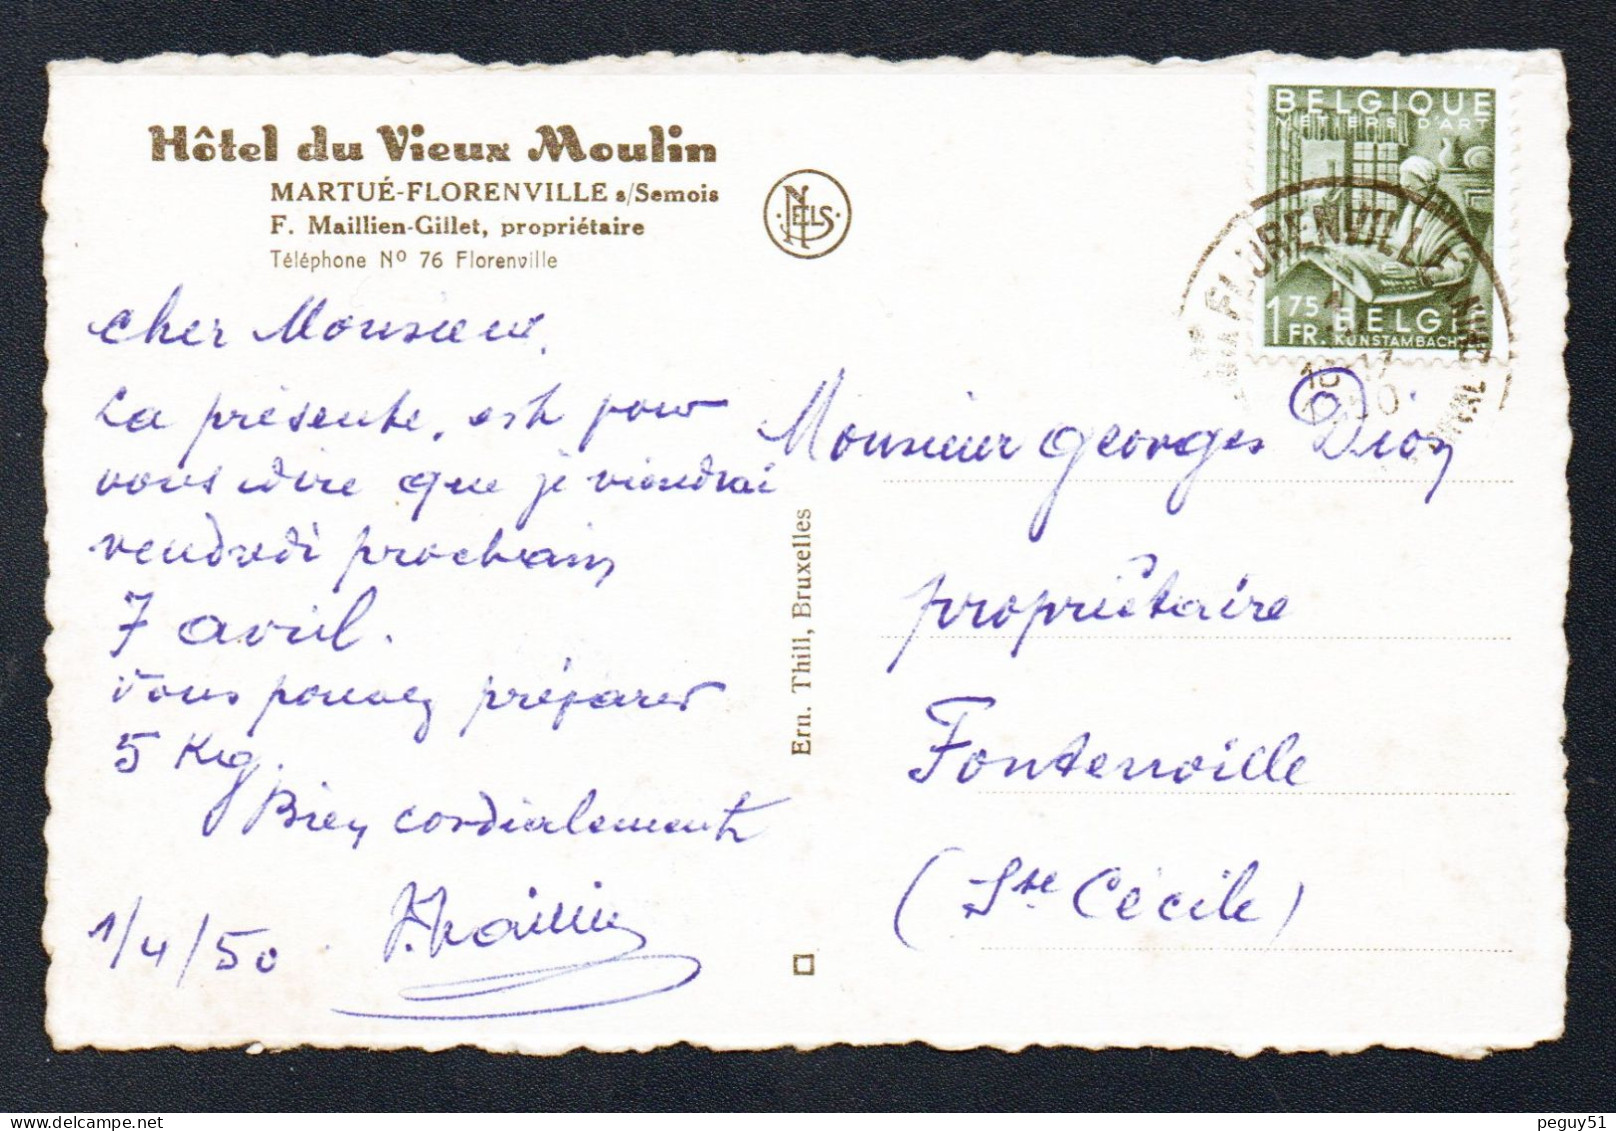 Hôtel du Vieux Moulin
MARTUÉ-FLORENVILLE s/Semois
F. Maillien-Gillet, propriétaire
Téléphone Nº 76 Florenville
NELS
BELGIQUE
METIERS D'ART
1 75
FR.
BELGIË
KUNSTAMBACHTEN
FLORENVILLE
cher Monsieur,
La présente, est pour
vous dire que je viendrai
vendredi prochain
7 avril.
Vous pouvez préparer
5 Kg.
Bien cordialement
1/4/50
F. Maillien
Ern. Thill, Bruxelles
Monsieur Georges Dion
propriétaire
Fontenoille
(Ste Cécile)
peguy51